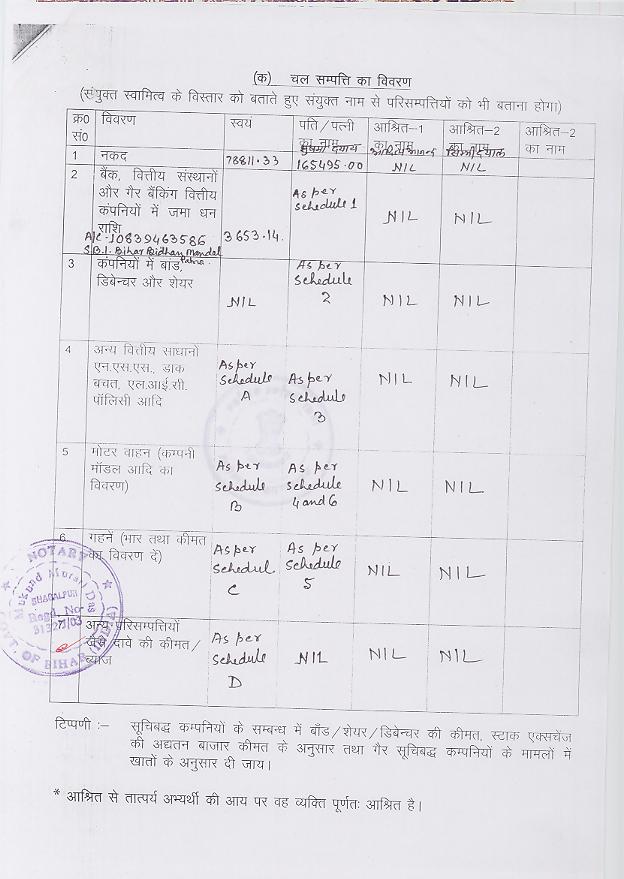 (क) चल सम्पत्ति का विवरण
(संयुक्त स्वामित्व के विस्तार को बताते हुए संयुक्त नाम से परिसम्पत्तियों को भी बताना होगा)
क्र० सं० विवरण स्वयं पति/पत्नी का नाम आश्रित-1 का नाम आश्रित-2 का नाम आश्रित-2 का नाम
1 नकद 78811.33 165495.00 NIL NIL
2 बैंक, वित्तीय संस्थानों
और गैर बैंकिंग वित्तीय As per
कंपनियों में जमा धन schedule 1 NIL NIL
राशि
A/C-10839463586 3653.14.
S.B.I. Bihar Bidhan Mandal
Patna
3 कंपनियों में बांड, As per
डिबेन्चर और शेयर schedule
NIL 2 NIL NIL
4 अन्य वित्तीय साधानों
एन.एस.एस., डाक As per
बचत, एल.आई.सी. schedule As per NIL NIL
पॉलिसी आदि A schedule
3
5 मोटर वाहन (कम्पनी
मॉडल आदि का As per As per
विवरण) schedule schedule NIL NIL
B 4 and 6
6. गहनें (भार तथा कीमत As per As per
का विवरण दें) schedul schedule NIL NIL
C 5
7 अन्य परिसम्पत्तियों
जैसे दावे की कीमत/ As per
ब्याज schedule NIL NIL NIL
D
NOTARY
Mukund Murari Das
BHAGALPUR
Regd. No-
GOVT. OF BIHAR
टिप्पणी :– सूचिबद्ध कम्पनियों के सम्बन्ध में बाँड/शेयर/डिबेन्चर की कीमत, स्टाक एक्सचेंज
की अद्यतन बाजार कीमत के अनुसार तथा गैर सूचिबद्ध कम्पनियों के मामलों में
खातों के अनुसार दी जाय।
* आश्रित से तात्पर्य अभ्यर्थी की आय पर वह व्यक्ति पूर्णतः आश्रित है।